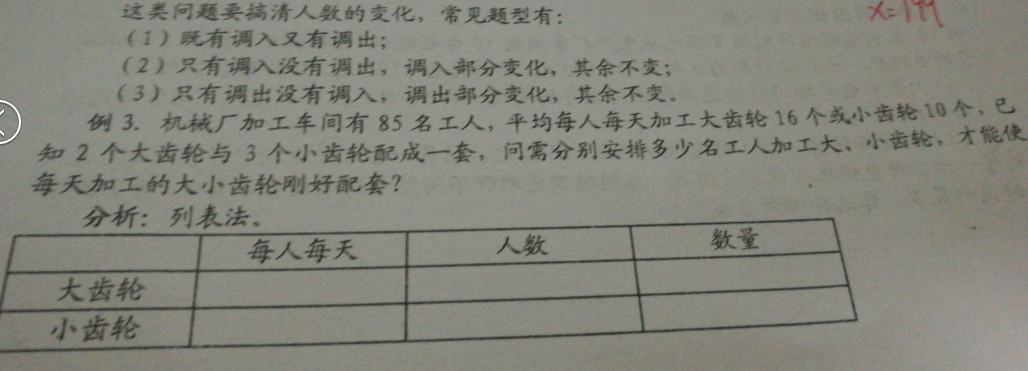 这类问题要搞清人数的变化，常见题型有：
x=199
（1）既有调入又有调出；
（2）只有调入没有调出，调入部分变化，其余不变；
（3）只有调出没有调入，调出部分变化，其余不变。
例 3．机械厂加工车间有 85 名工人，平均每人每天加工大齿轮 16 个或小齿轮 10 个，已
知 2 个大齿轮与 3 个小齿轮配成一套，问需分别安排多少名工人加工大、小齿轮，才能使
每天加工的大小齿轮刚好配套？
分析：列表法。
每人每天 人数 数量
大齿轮
小齿轮